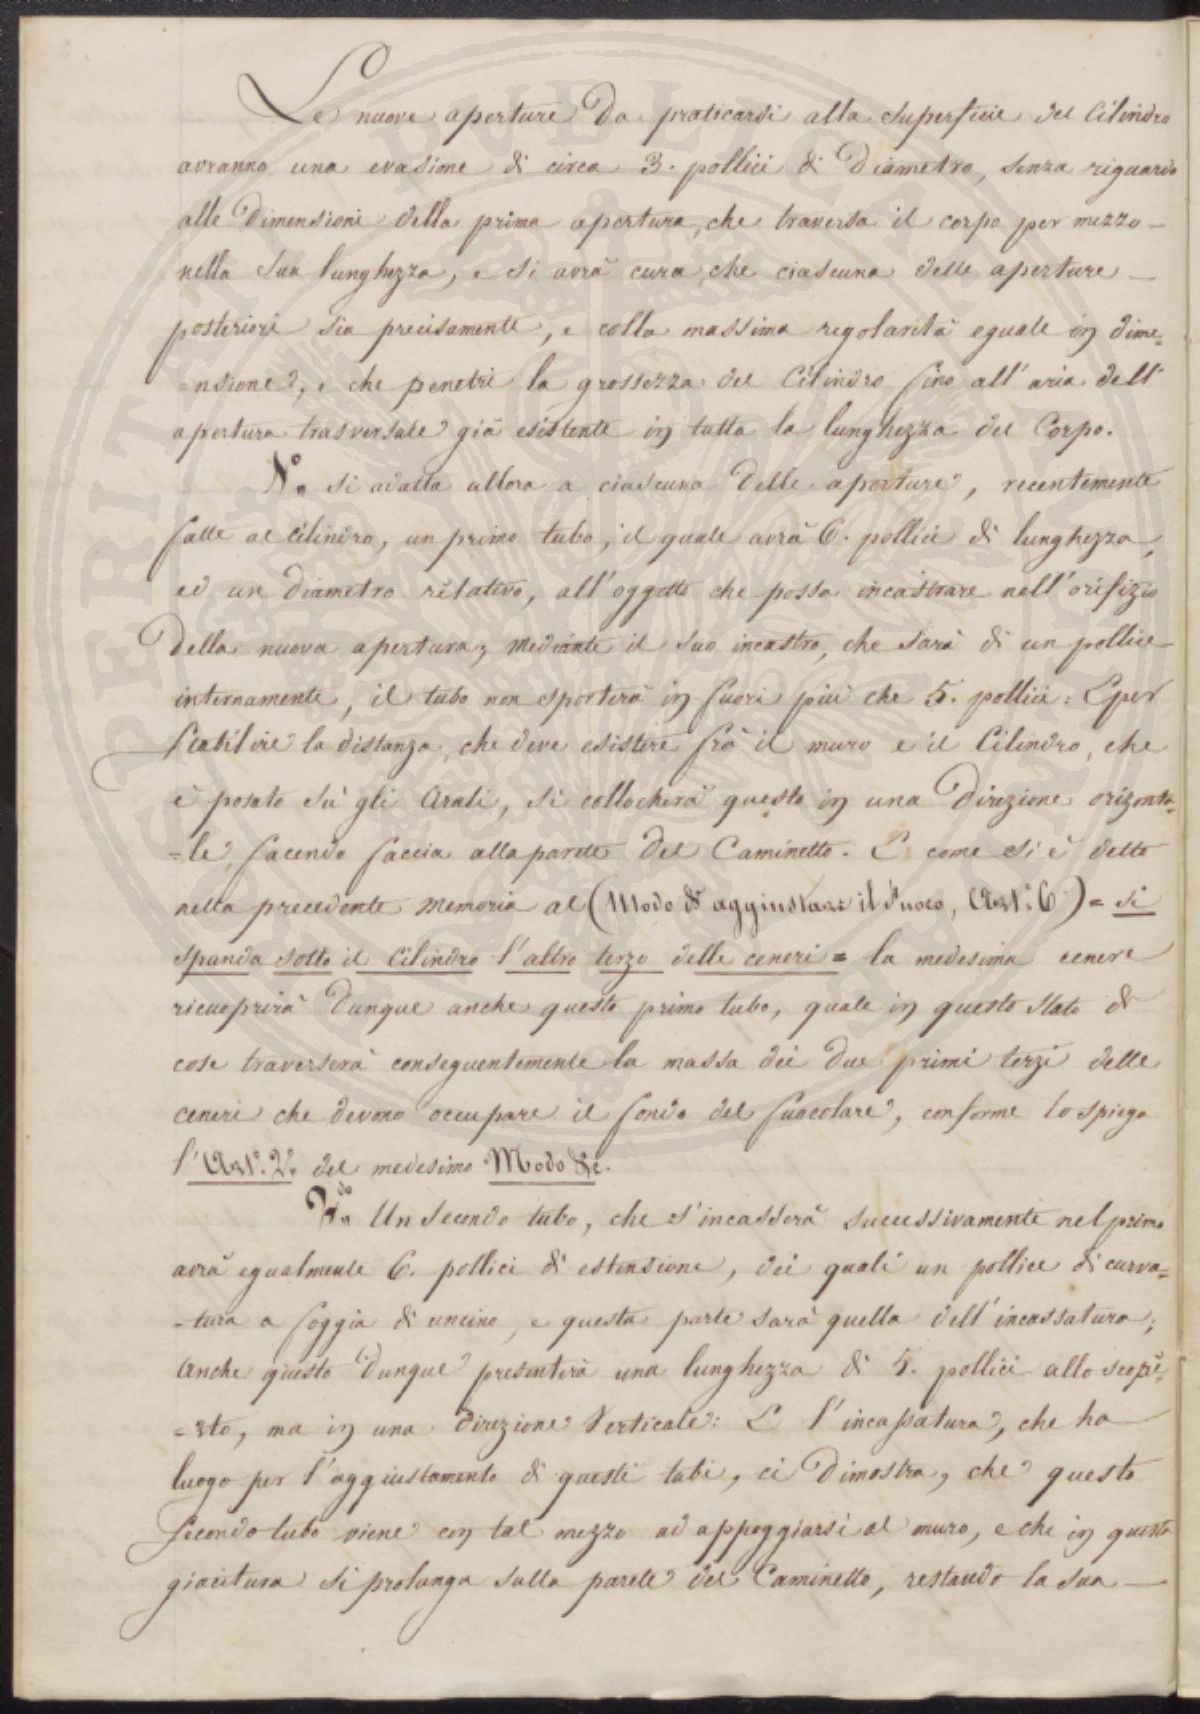 Le nuove aperture da praticarsi alla superficie del Cilindro
avranno una evasione di circa 3. pollici di Diametro, senza riguardo
alle Dimensioni della prima apertura, che traversa il corpo per mezzo
nella sua lunghezza, e si avrà cura, che ciascuna delle aperture
posteriori sia precisamente, e colla massima regolarità eguale in dime=
=nsione, e che penetri la grossezza del Cilindro fino all'aria dell'
apertura trasversale già esistente in tutta la lunghezza del Corpo.
Si adatta allora a ciascuna delle aperture, recentemente
fatte al Cilindro, un primo tubo, il quale avrà 6. pollici di lunghezza,
ed un Diametro relativo, all'oggetto che possa incastrare nell'orifizio
della nuova apertura; mediante il suo incastro, che sarà di un pollice
internamente, il tubo non sporterà in fuori più che 5. pollici: E per
stabilire la distanza, che deve esistere frà il muro e il Cilindro, che
è posato sù gli Arali, si collocherà questo in una Direzione orizonta=
=le, facendo faccia alla parete del Caminetto. E come si è detto
nella precedente Memoria al (Modo di aggiustare il Fuoco, Art.° 6.°) = si
spanda sotto il Cilindro l'altro terzo delle ceneri = la medesima cenere
ricuoprirà dunque anche questo primo tubo, quale in questo stato di
cose traverserà conseguentemente la massa dei due primi terzi delle
ceneri che devono occupare il fondo del fuocolare, conforme lo spiega
l'Art.° 2.° del medesimo Modo &c.
Un Secondo tubo, che s'incasserà successivamente nel primo
avrà egualmente 6. pollici di estensione, dei quali un pollice di curva=
=tura a foggia di uncino, e questa parte sarà quella dell'incassatura;
Anche questo dunque presenterà una lunghezza di 5. pollici allo scope=
=rto, ma in una Direzione Verticale: E l'incassatura, che ha
luogo per l'aggiustamento di questi tubi, ci Dimostra, che questo
secondo tubo viene con tal mezzo ad appoggiarsi al muro, e che in questa
giacitura si prolunga sulla parete del Caminetto, restando la sua